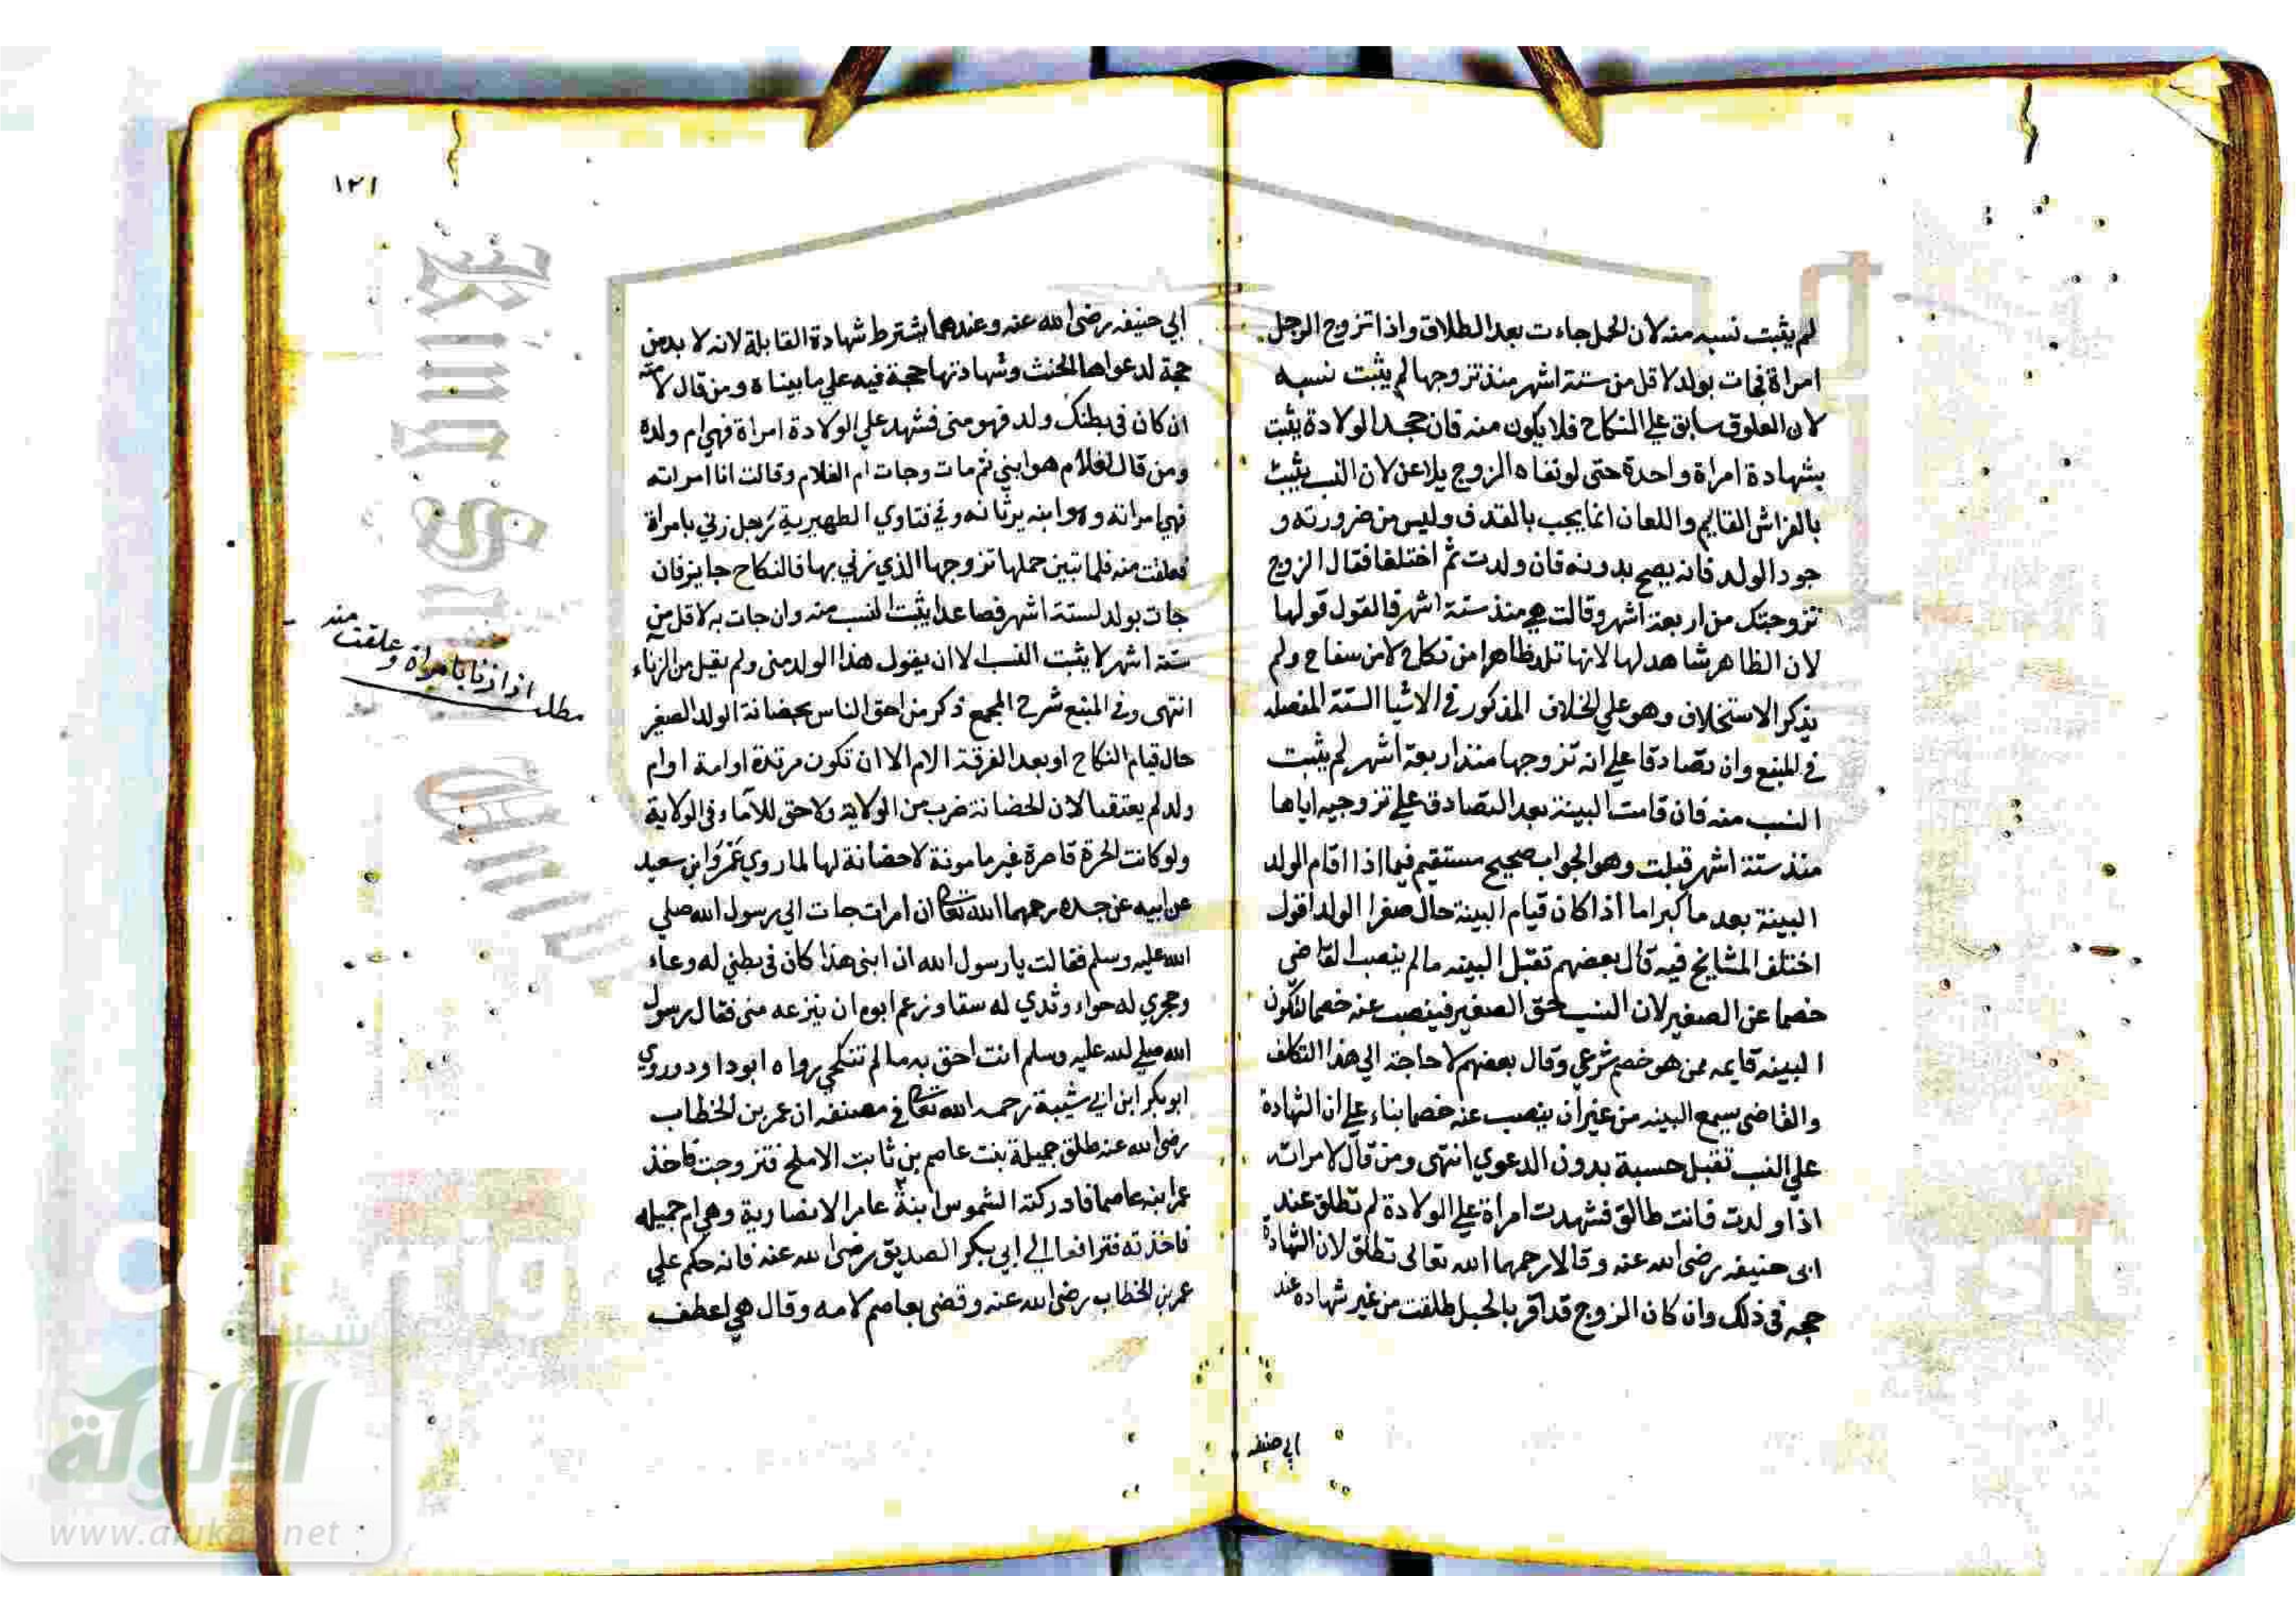 لم يثبت نسبه منه لان الحمل جاءت بعد الطلاق واذا تزوج الرجل
امراة فجات بولد لاقل من ستة اشهر منذ تزوجها لم يثبت نسبه
لان العلوق سابق علي النكاح فلا يكون منه فان جحد الولادة يثبت
بشهادة امراة واحدة حتى لو نفاه الزوج يلاعن لان النسب يثبت
بالفراش القايم واللعان انما يجب بالقذف وليس من ضرورته و
جود الولد فانه يصح بدونه فان ولدت ثم اختلفا فقال الزوج
تزوجتك من اربعة اشهر وقالت هي منذ ستة اشهر فالقول قولها
لان الظاهر شاهد لها لانها تلد ظاهرا من نكاح لا من سفاح ولم
يذكر الاستحلاف وهو علي الخلاف المذكور في الاشيا الستة المفصله
في المنبع وان تصادقا علي انه تزوجها منذ اربعة اشهر لم يثبت
النسب منه فان قامت البينة بعد التصادق علي تزوجيه اياها
منذ ستة اشهر قبلت وهو الجواب صحيح مستقيم فيما اذا اقام الولد
البينة بعد ما كبر اما اذا كان قيام البينة حال صغر الولد اقول
اختلف المشايخ فيه قال بعضهم تقبل البينه ما لم ينصب القاضي
خصما عن الصغير لان النسب حق الصغير فينصب عنه خصما لتكون
البينه قايمه ممن هو خصم شرعي وقال بعضهم لا حاجة الي هذا التكلف
والقاضي يسمع البينه من غير ان ينصب عنه خصما بناء علي ان الشهادة
علي النسب تقبل حسبة بدون الدعوي انتهى ومن قال لامراته
اذا ولدت فانت طالق فشهدت امراة علي الولادة لم تطلق عند
ابى حنيفه رضى الله عنه وقالا رحمهما الله تعالى تطلق لان الشهادة
حجه فى ذلك وان كان الزوج قد اقر بالحبل طلقت من غير شهادة عند
ابي حنيفه
١٢١
ابي حنيفه رضى الله عنه وعندهما يشترط شهادة القابلة لانه لا بد من
حجة لدعواها الحنث وشهادتها حجة فيه علي ما بيناه ومن قال لامته
ان كان فى بطنك ولد فهو منى فشهد علي الولادة امراة فهي ام ولده
ومن قال لغلام هو ابني ثم مات وجات ام الغلام وقالت انا امراته
فهي امراته وهو ابنه يرثانه وفي فتاوي الظهيرية رجل زني بامراة
فعلقت منه فلما تبين حملها تزوجها الذي زني بها فالنكاح جايز فان
جات بولد لستة اشهر فصاعدا يثبت النسب منه وان جات به لاقل من
ستة اشهر لا يثبت النسب الا ان يقول هذا الولد منى ولم يقل من الزناء
انتهى وفي المنبع شرح المجمع ذكر من احق الناس بحضانة الولد الصغير
حال قيام النكاح او بعد الفرقة الام الا ان تكون مرتدة او امة او ام
ولد لم يعتقها لان الحضانة ضرب من الولاية ولا حق للآماء فى الولاية
ولو كانت الحرة قاصرة غير مامونة لا حضانة لها لما روي عَمْرُو ابن سعيد
عن ابيه عن جده رحمهما الله تعالى ان امرات جات الي رسول الله صلي
الله عليه وسلم فقالت يا رسول الله ان ابنى هذا كان فى بطني له وعاء
وحجري له حواء وثدي له سقا وزعم ابوه ان ينزعه منى فقال رسول
الله صلي الله عليه وسلم انت احق به ما لم تنكحي رواه ابو داود وروي
ابو بكر ابن ابي شيبة رحمه الله تعالى في مصنفه ان عمر بن الخطاب
رضى الله عنه طلق جميلة بنت عاصم بن ثابت الاملح فتزوجت فاخذ
عمر ابنه عاصما فادركته الشموس ابنة عامر الانصارية وهي ام جميله
فاخذته فترافعا الي ابي بكر الصديق رضى الله عنه فانه حكم علي
عمر بن الخطاب رضى الله عنه وقضى بعاصم لامه وقال هي اعطف
مطلب اذا زنا بامراة وعلقت منه
شبكة
الألوكة
www.alukah.net